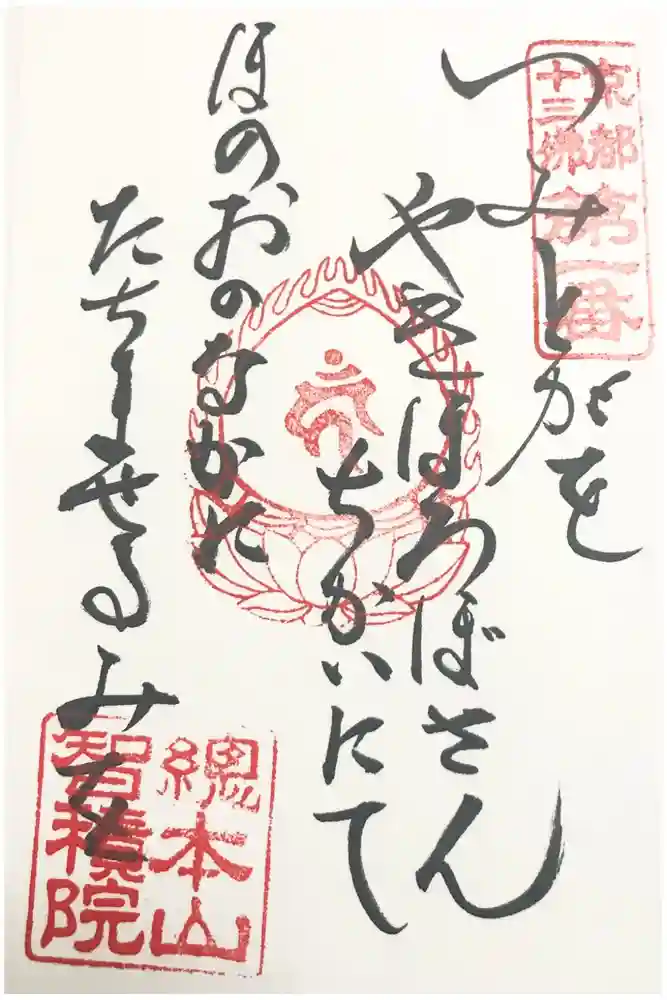 つみとがを
やきほろぼさん
ちかいにて
ほのおのなかに
たちませるみを
京都
十三佛
第一番
總本山
智積院